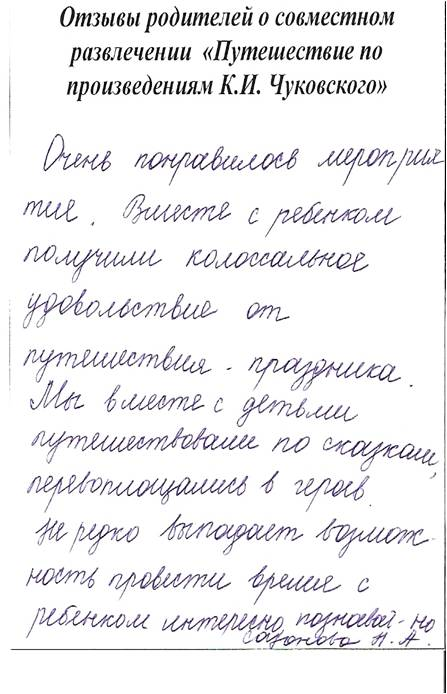 Отзывы родителей о совместном
развлечении «Путешествие по
произведениям К.И. Чуковского»
Очень понравилось мероприя
тие. Вместе с ребенком
получили колоссальное
удовольствие от
путешествия - праздника.
Мы вместе с детьми
путешествовали по сказкам,
перевоплощались в героев.
Не редко выпадает возмож-
ность провести время с
ребенком интересно, познават-но
Сазонова Н. А.